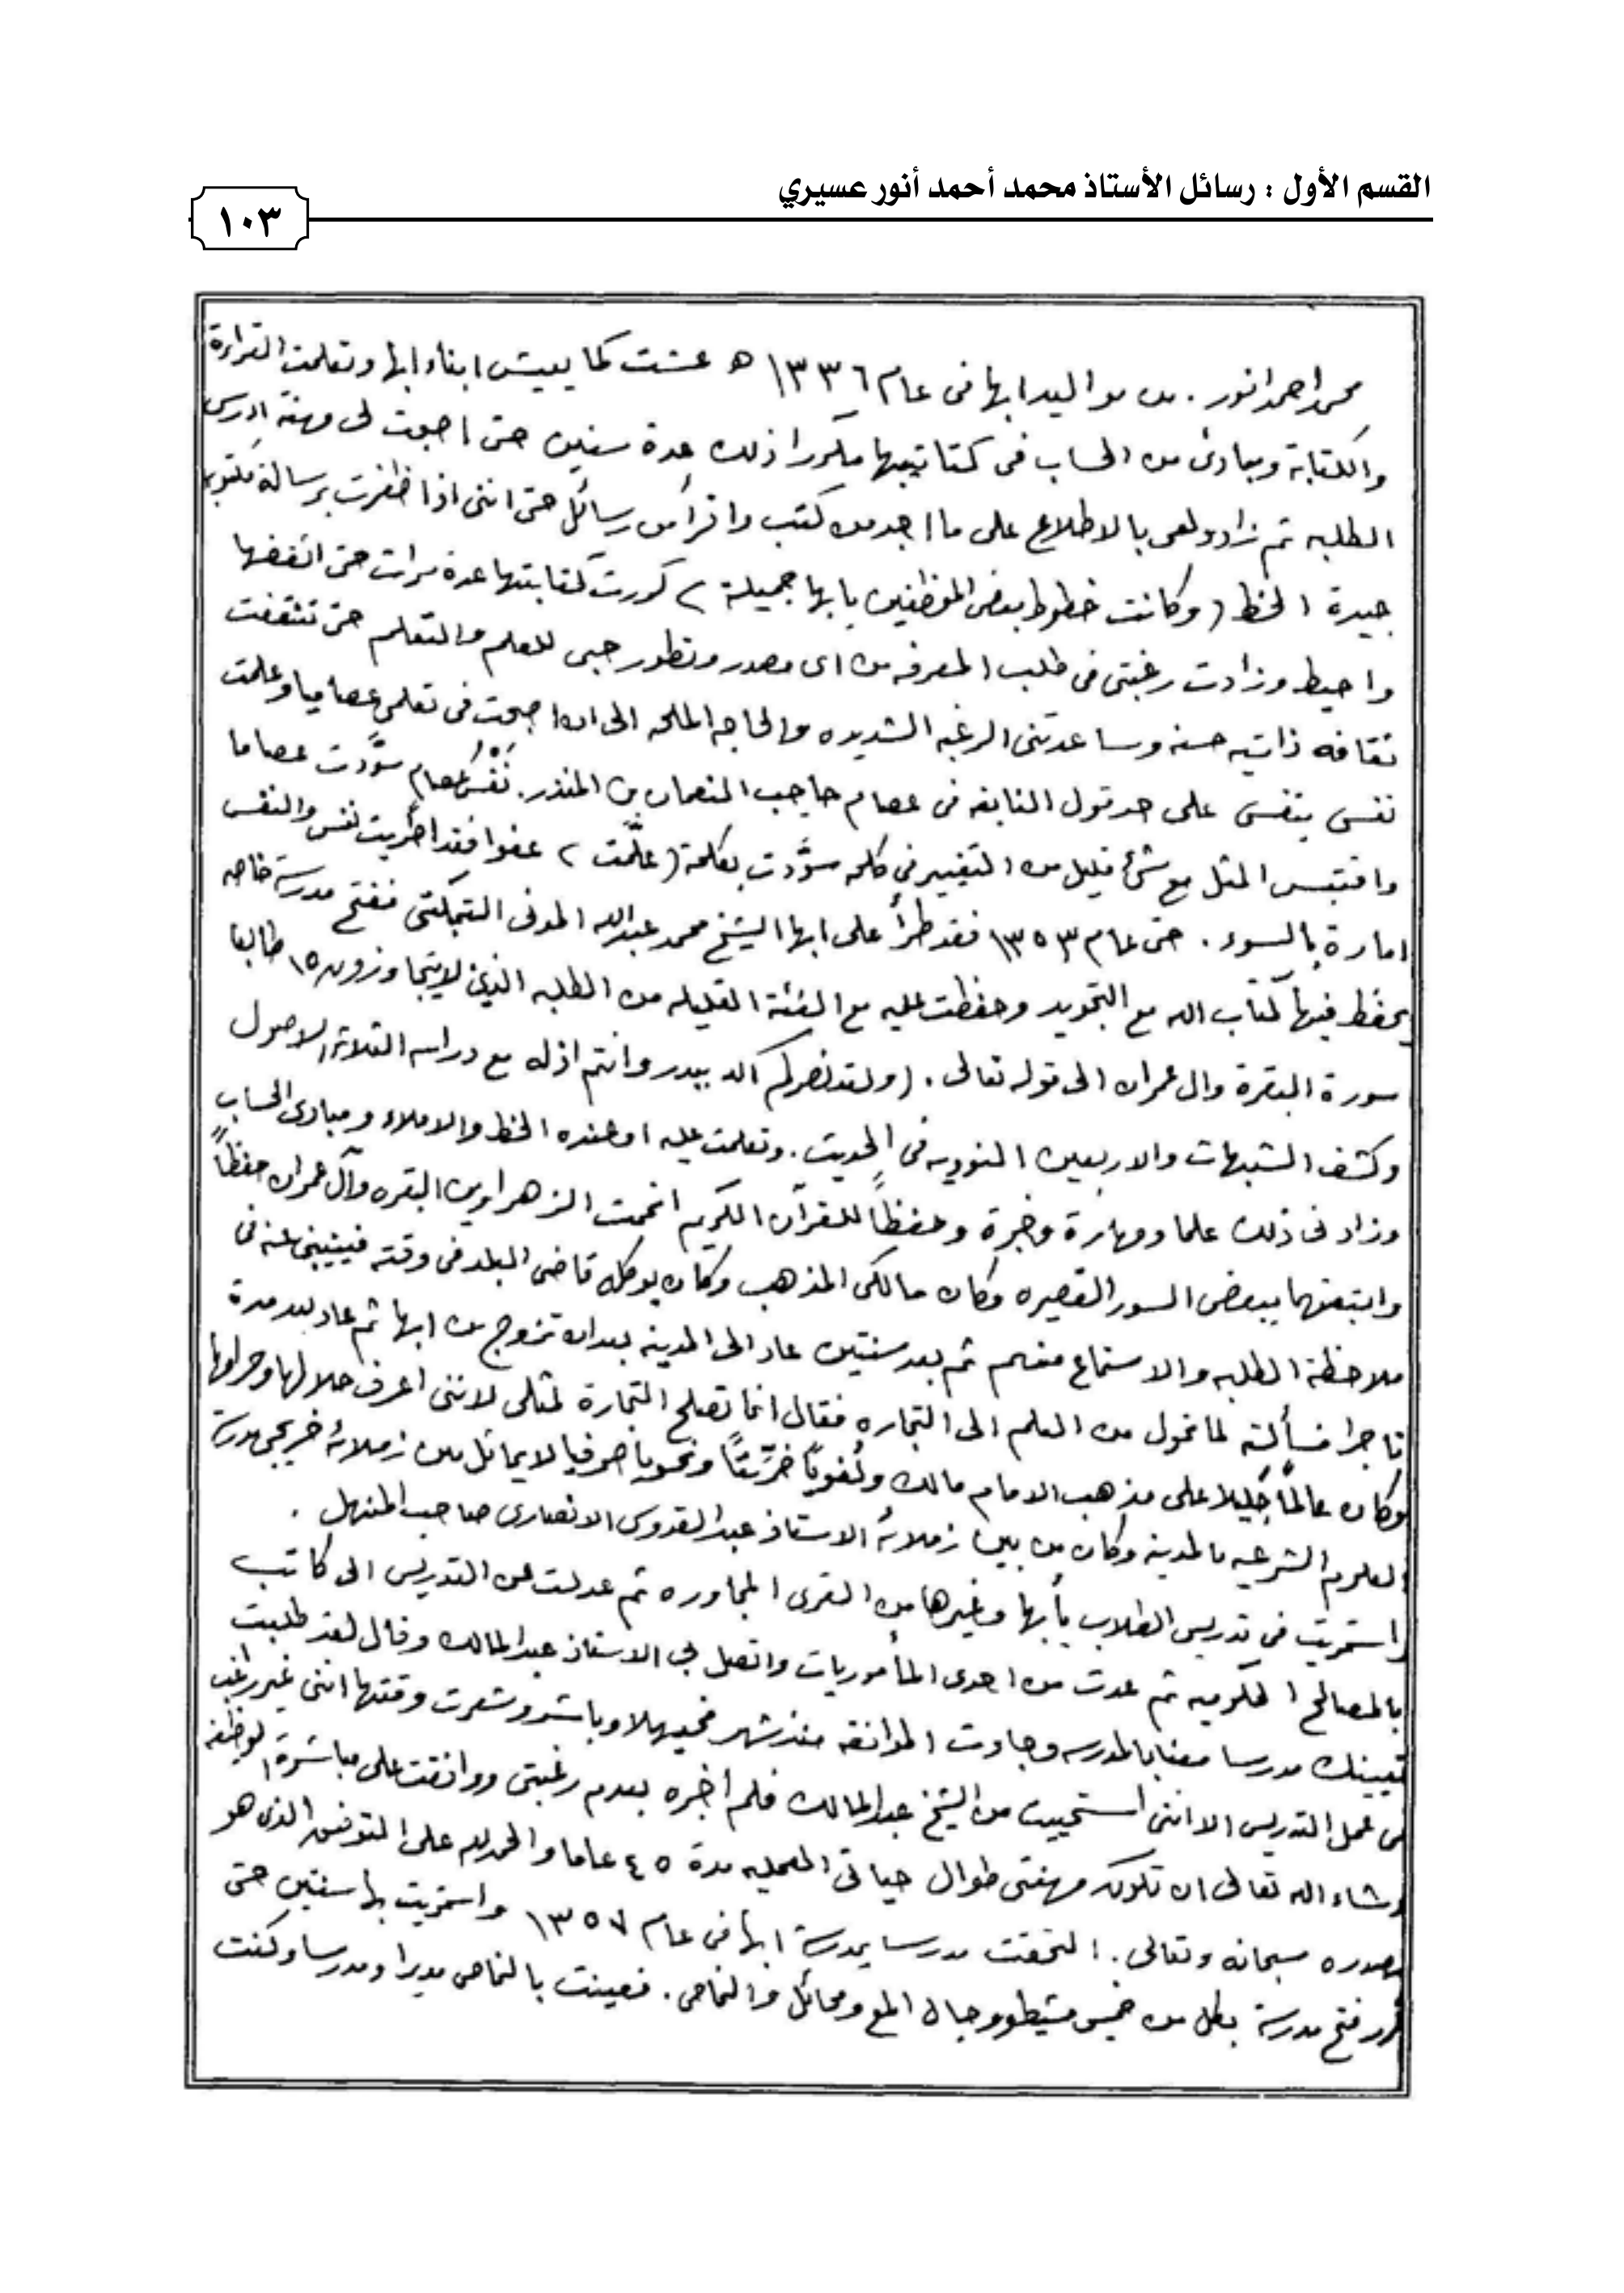 القسم الأول : رسائل الأستاذ محمد أحمد أنور عسيري
١٠٣
محمد احمد انور . من مواليد ابها فى عام ١٣٣٦ هـ عشت كما يعيش ابناء ابها وتعلمت القراءة
والكتابة ومبادئ من الحساب فى كتاتيبها مكررا ذلك عدة سنين حتى اصبحت لى مهنة ادرس
الطلبه ثم زاد ولعى بالاطلاع على ما اجد من كتب واقرأ من رسائل حتى اننى اذا ظفرت برسالة مكتوبه
جيدة الخط ( وكانت خطوط بعض الموظفين بابها جميلة ) كررت كتابتها عدة مرات حتى اتقنها
واحيط وزادت رغبتى فى طلب المعرفه من اى مصدر وتطور حبى للعلم والتعلم حتى تثقفت
ثقافه ذاتيه حسنه وساعدتنى الرغبه الشديده والحاجه الملحه الى ان اصبحت فى تعلمى عصاميا وعلمت
نفسى بنفسى على حد قول النابغه فى عصام حاجب النعمان بن المنذر . نَفْسُ عصام سوَّدت عصاما
واقتبس المثل مع شئ قليل من التغيير فى كلمه سوَّدت بكلمة ( علَّمت ) عفوا فقد اطريت نفسى والنفس
امارة بالسوء . حتى عام ١٣٥٣ فقد طرأ على ابها الشيخ محمد عبدالله المدنى التنبكتى ففتح مدرسة خاصه
يحفظ فيها كتاب الله مع التجويد وحفظت عليه مع الفئة القليله من الطلبه الذين لا يتجاوزون ١٥ طالبا
سورة البقرة وال عمران الى قوله تعالى . ( ولقد نصركم الله ببدر وانتم اذله مع دراسه الثلاثة الاصول
وكشف الشبهات والاربعين النوويه فى الحديث . وتعلمت عليه او عنده الخط والاملاء ومبادئ الحساب
وزاد فى ذلك علما ومهارة وخبرة وحفظاً للقرآن الكريم اتممت الزهراوين البقره وآل عمران حفظاً
وابتعتهما ببعض السور القصيره وكان مالكى المذهب وكان يوكل قاضى البلد فى وقته فينيبنى عنه فى
ملاحظة الطلبه والاستماع منهم ثم بعد سنتين عاد الى المدينه بعد ان تزوج من ابها ثم عاد بعد مدة
تاجرا فسألته لما تحول من العلم الى التجاره فقال انما تصلح التجارة لمثلى لاننى اعرف حلالها وحرامها
وكان عالماً جليلا على مذهب الامام مالك ولُغوياً خرِّيتاً ونحويا صرفيا لا يماثل من زملائه خريجى مدرسة
العلوم الشرعيه بالمدينه وكان من بين زملائه الاستاذ عبدالقدوس الانصارى صاحب المنهل .
استمريت فى تدريس الطلاب بأبها وغيرها من القرى المجاوره ثم عدلت عن التدريس الى كاتب
بالمصالح الحكوميه ثم عدت من احدى المأموريات واتصل بى الاستاذ عبدالمالك وقال لقد طلبت
تعيينك مدرسا معنا بالمدرسه وجاءت الموافقه منذ شهر فحيهلا وباشر وشعرت وقتها اننى غير راغب
فى عمل التدريس الا اننى استحييت من الشيخ عبدالمالك فلم اخبره بعدم رغبتى ووافقت على مباشرة الوظيفه
وشاء الله تعالى ان تكون مهنتى طوال حياتى العمليه مدة ٤٥ عاما والحمد لله على التوفيق الذى هو
مصدره سبحانه وتعالى . التحقت مدرسا بمدرسة ابها فى عام ١٣٥٧ واستمريت بها سنتين حتى
قرر فتح مدرسة بكل من خميس مشيط ورجال المع ومحائل والنماص . فعينت بالنماص مديرا ومدرسا وكنت